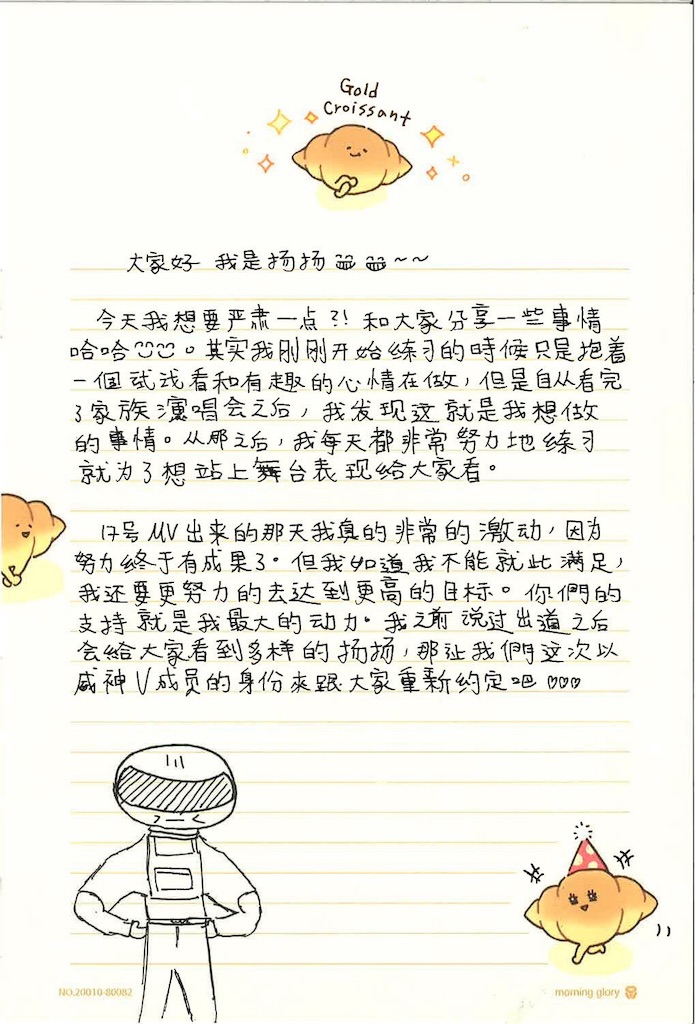 Gold
Croissant
大家好 我是扬扬 ~~
今天我想要严肃一点?! 和大家分享一些事情
哈哈。其实我刚刚开始练习的時候只是抱着
一個试试看和有趣的心情在做,但是自从看完
了家族演唱会之后,我发现这就是我想做
的事情。从那之后,我每天都非常努力地练习
就为了想站上舞台表现给大家看。
17号MV出来的那天我真的非常的激动,因为
努力终于有成果了。但我知道我不能就此满足,
我还要更努力的去达到更高的目标。你們的
支持就是我最大的动力。我之前说过出道之后
会给大家看到多样的扬扬,那让我們这次以
威神V成员的身份來跟大家重新约定吧 ♡♡♡
NO.20010-80082
morning glory